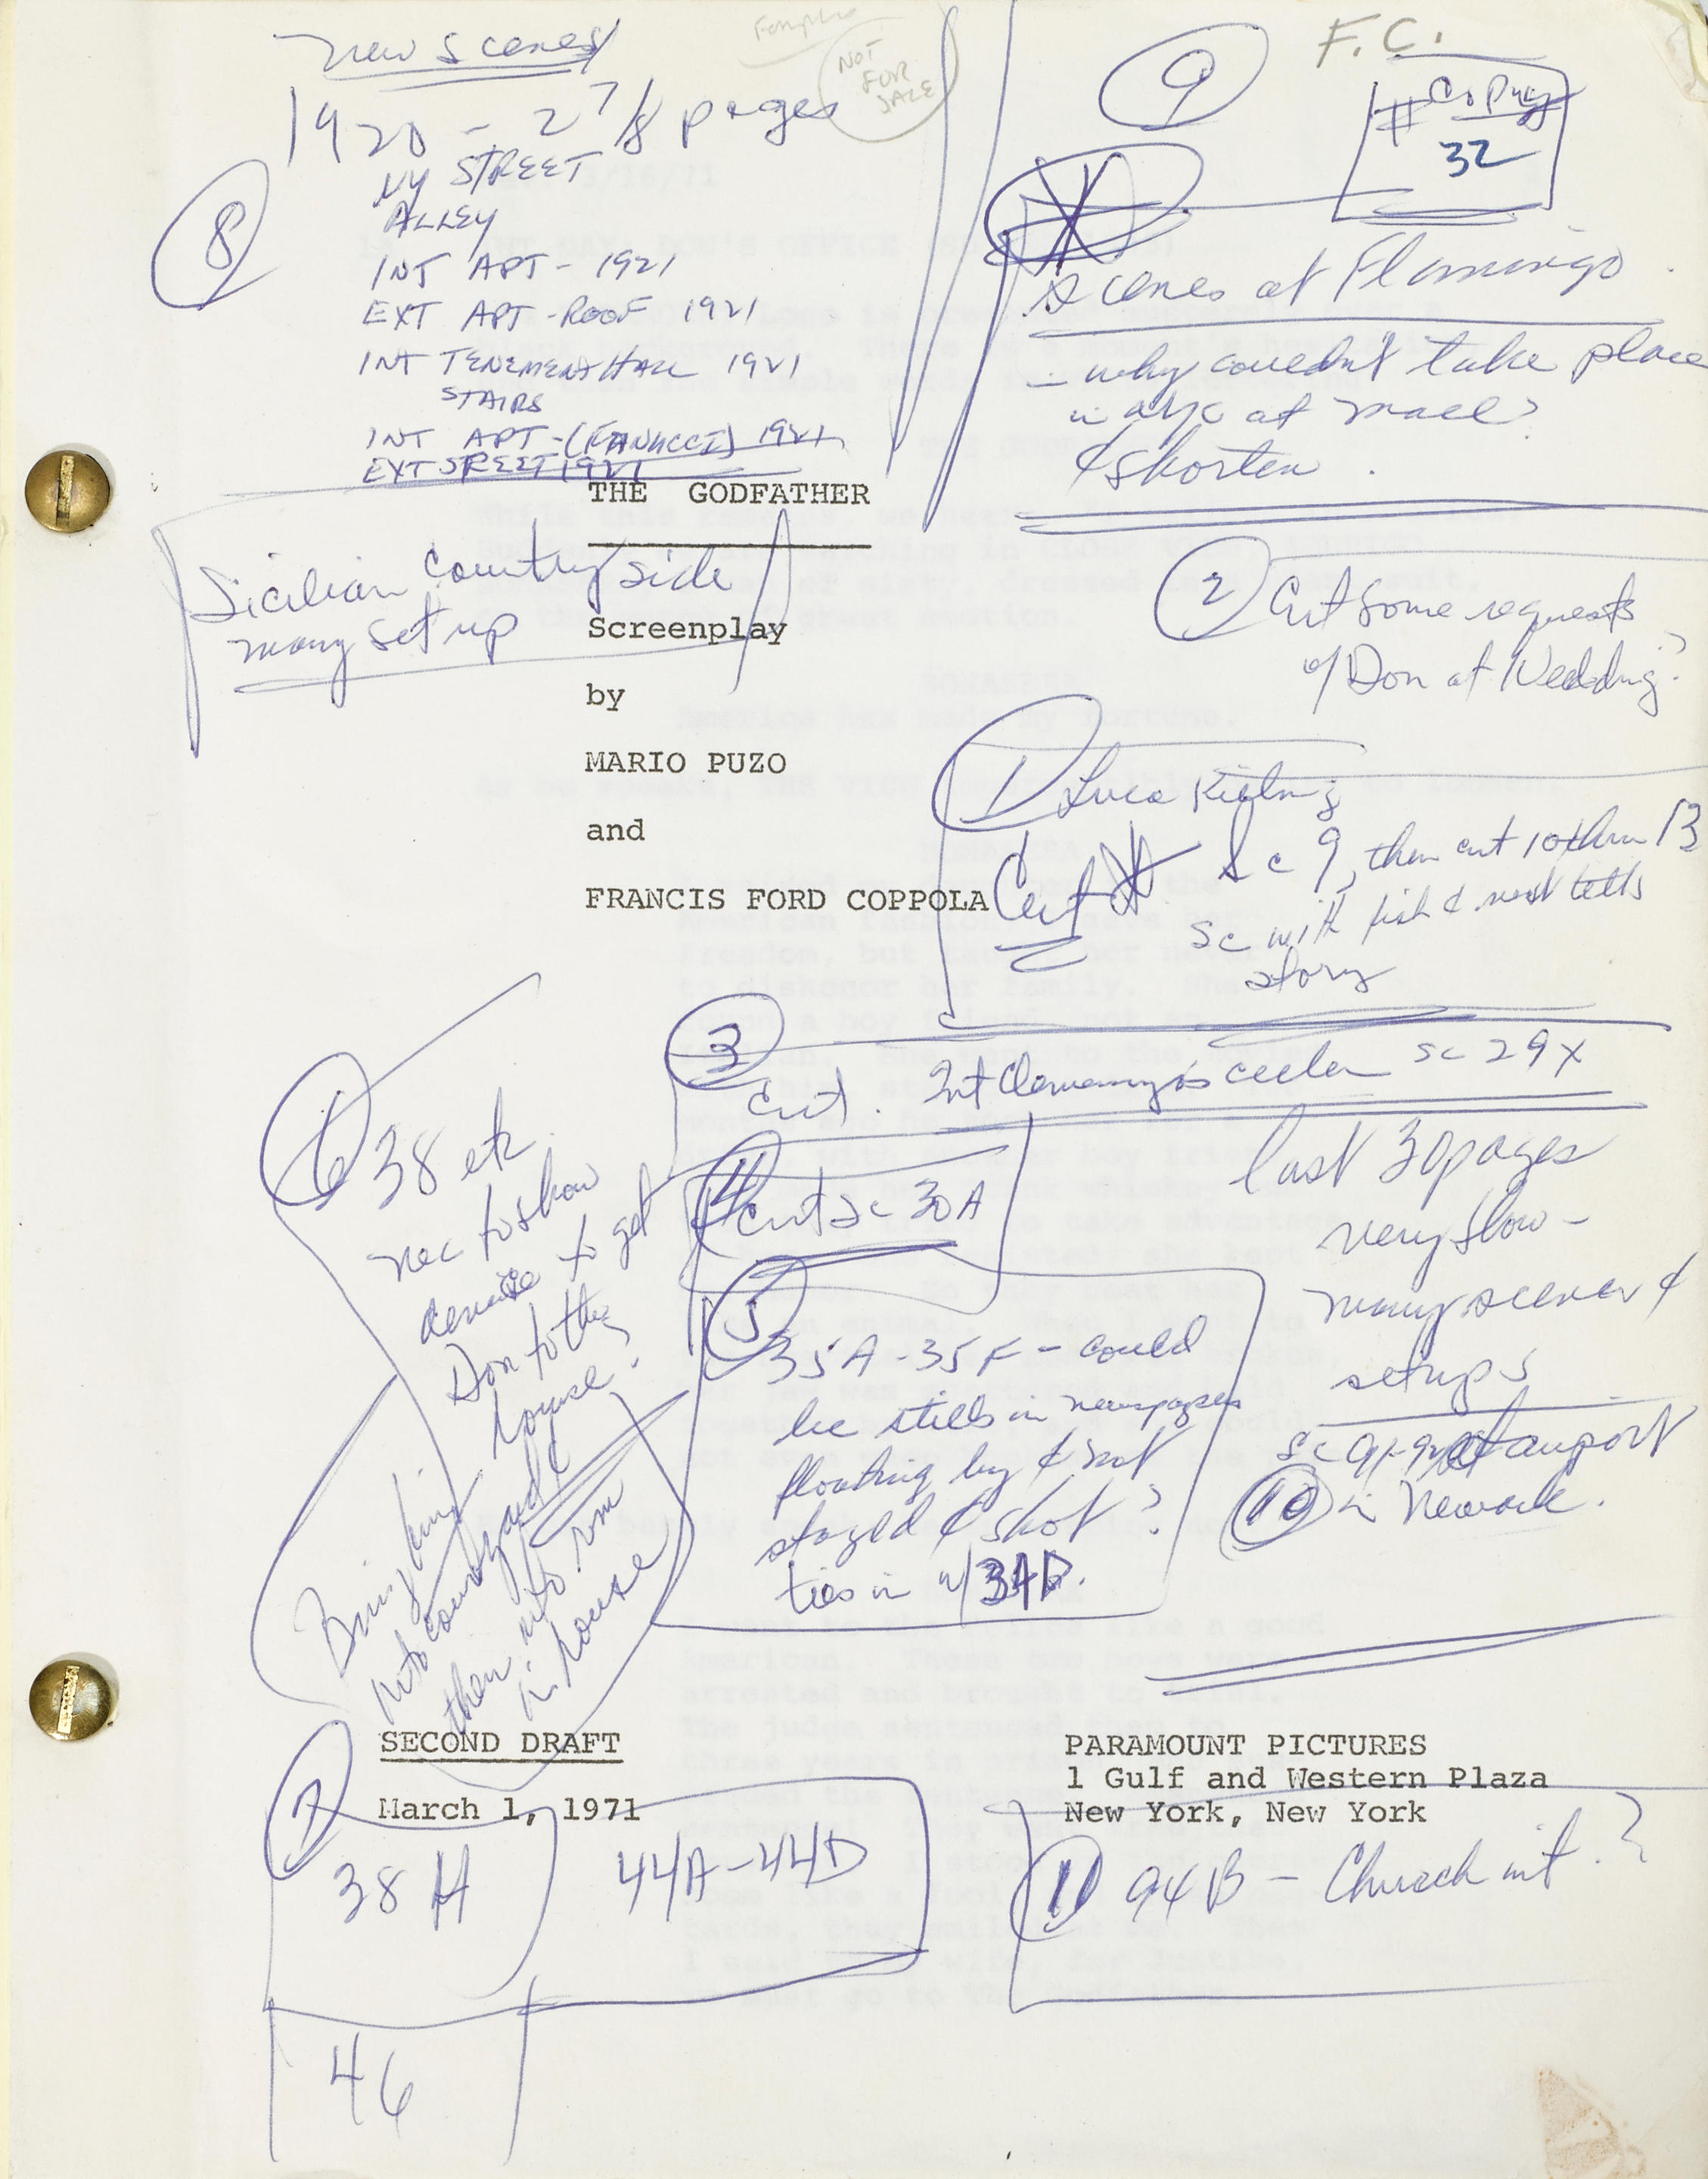 New Scenes
1920 - 2 7/8 pages
NOT
FOR
SALE
F.C.
Copy
# 32
8
NY STREET
ALLEY
INT APT - 1921
EXT APT - ROOF 1921
INT TENEMENT HALL 1921
STAIRS
INT APT - (FANUCCI) 1921
EXT STREET 1921
9
Scenes at Flamingo
- why couldn't take place
in NYC at mall?
& shorten.
THE GODFATHER
Sicilian Countryside
many set up
Screenplay
by
MARIO PUZO
and
FRANCIS FORD COPPOLA
2 Cut some requests
of Don at Wedding?
1 Luca Killing
Cut Sc 9, then cut 10 thru 13
Sc with fish & next tells
story
3
Cut. Int Clemenza's cellar Sc 29X
4 Cut Sc 30A
5
35A - 35F - could
be stills in newspapers
floating by & not
staged & shot?
ties in w/ 34D.
last 30 pages
very slow -
many scenes &
setups
Sc 91-92 at airport
10 in Newark.
6 38 etc
nec to show
device to get
Don to the
house?
Bring him
into courtyard &
then into rm
in house
SECOND DRAFT
March 1, 1971
PARAMOUNT PICTURES
1 Gulf and Western Plaza
New York, New York
7
38 H
44A - 44D
46
11 94B - Church int.?